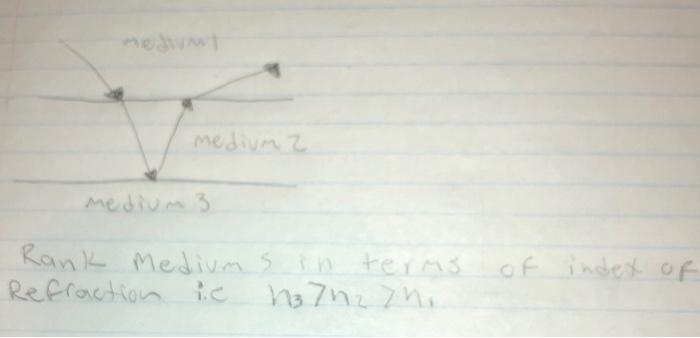 medium 1
medium 2
medium 3
Rank Mediums in terms of index of
Refraction i.e n₃>n₂>n₁